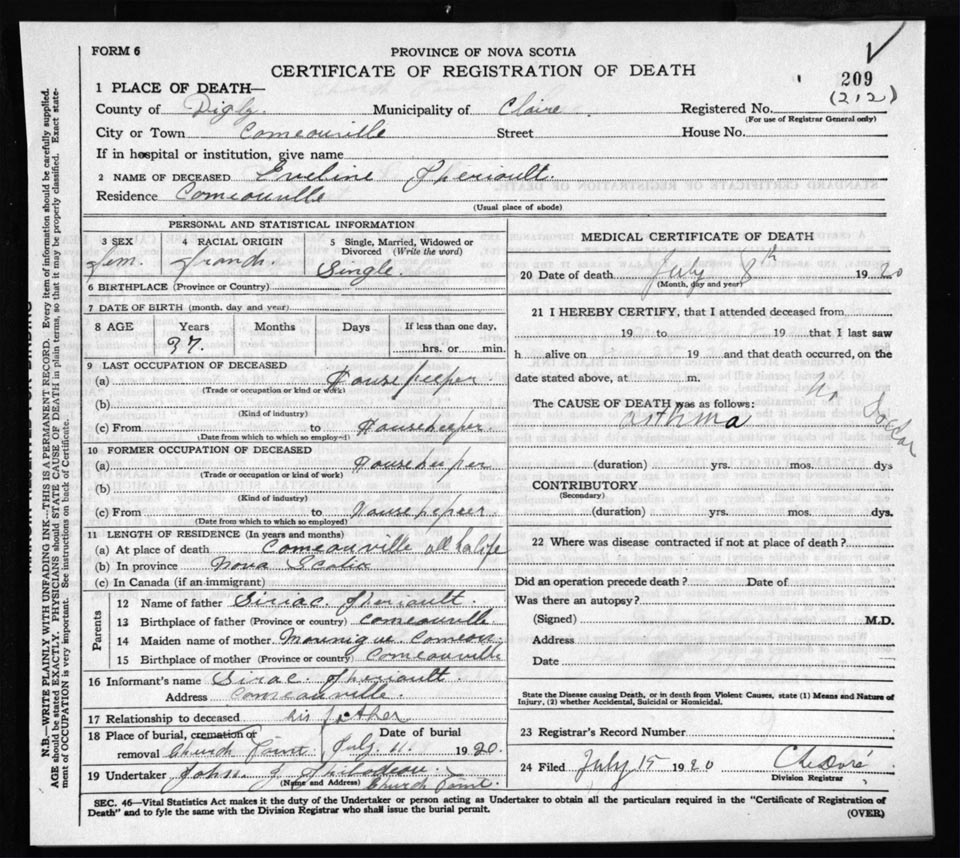 FORM 6
PROVINCE OF NOVA SCOTIA
CERTIFICATE OF REGISTRATION OF DEATH
209
(212)
1 PLACE OF DEATH—
County of Digby Municipality of Claire Registered No.
(For use of Registrar General only)
City or Town Comeauville Street House No.
If in hospital or institution, give name
2 NAME OF DECEASED Eveline Theriault.
Residence Comeauville
(Usual place of abode)
PERSONAL AND STATISTICAL INFORMATION
3 SEX 4 RACIAL ORIGIN 5 Single, Married, Widowed or Divorced (Write the word)
fem. french. Single.
6 BIRTHPLACE (Province or Country)
7 DATE OF BIRTH (month, day and year)
8 AGE Years Months Days If less than one day,
37. hrs. or min.
9 LAST OCCUPATION OF DECEASED
(a) Housekeeper
(Trade or occupation or kind of work)
(b)
(Kind of industry)
(c) From to Housekeeper.
(Date from which to which so employed)
10 FORMER OCCUPATION OF DECEASED
(a) Housekeeper
(Trade or occupation or kind of work)
(b)
(Kind of industry)
(c) From to Housekepeer
(Date from which to which so employed)
11 LENGTH OF RESIDENCE (In years and months)
(a) At place of death Comeauville all ha life
(b) In province Nova Scotia
(c) In Canada (if an immigrant)
Parents
12 Name of father Sirac. Theriault.
13 Birthplace of father (Province or country) Comeauville.
14 Maiden name of mother Mounique Comeau.
15 Birthplace of mother (Province or country) Comeauville
16 Informant's name Sirac. Theriault.
Address Comeauville.
17 Relationship to deceased his father
18 Place of burial, cremation or removal Church Point Date of burial July 11. 1920.
19 Undertaker John. J Thibodeau.
(Name and Address) Church Point.
MEDICAL CERTIFICATE OF DEATH
20 Date of death July 8th 1920
(Month, day and year)
21 I HEREBY CERTIFY, that I attended deceased from
19 to 19 that I last saw
h alive on 19 and that death occurred, on the
date stated above, at m.
The CAUSE OF DEATH was as follows: no Doctor
asthma
(duration) yrs. mos. dys
CONTRIBUTORY
(Secondary)
(duration) yrs. mos. dys.
22 Where was disease contracted if not at place of death?
Did an operation precede death? Date of
Was there an autopsy?
(Signed) M.D.
Address
Date
State the Disease causing Death, or in death from Violent Causes, state (1) Means and Nature of
Injury, (2) whether Accidental, Suicidal or Homicidal.
23 Registrar's Record Number
24 Filed July 15 1920
Division Registrar
SEC. 46—Vital Statistics Act makes it the duty of the Undertaker or person acting as Undertaker to obtain all the particulars required in the "Certificate of Registration of
Death" and to fyle the same with the Division Registrar who shall issue the burial permit. (OVER)
N.B.—WRITE PLAINLY WITH UNFADING INK—THIS IS A PERMANENT RECORD. Every item of information should be carefully supplied.
AGE should be stated EXACTLY. PHYSICIANS should STATE CAUSE OF DEATH in plain terms, so that it may be properly classified. Exact state-
ment of OCCUPATION is very important. See instructions on back of Certificate.